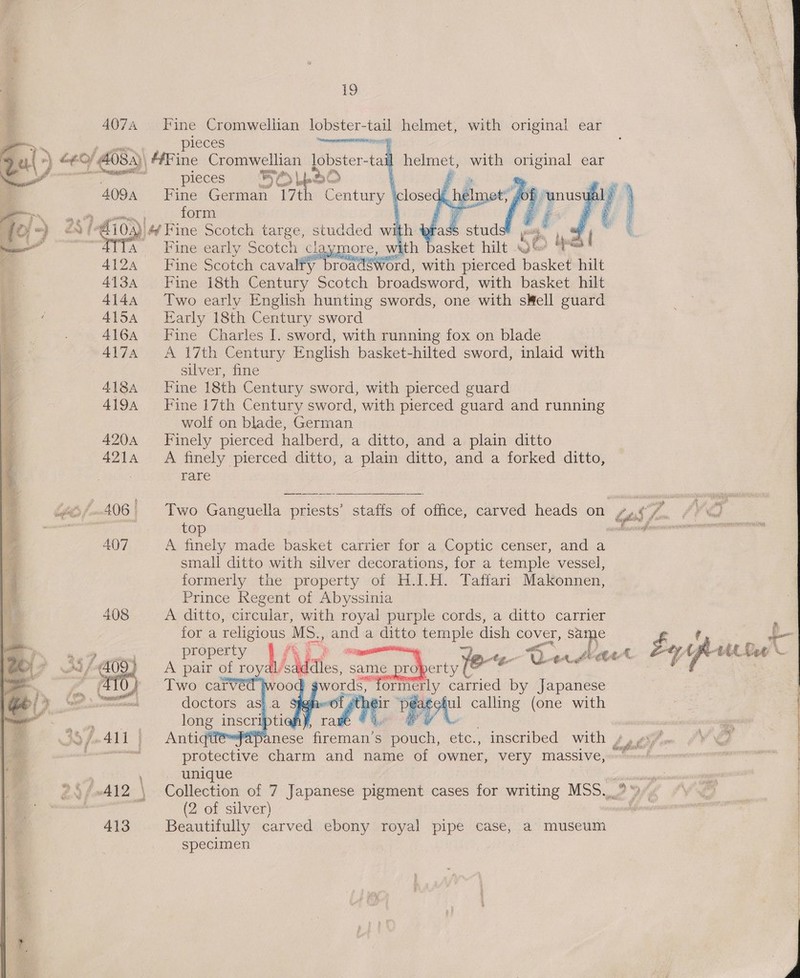 19
407A Fine Cromwellian lobster-tail helmet, with original ear
pieces
408A Fine Cromwellian lobster-tail helmet, with original ear
pieces
409A Fine German 17th Century closed helmet, of unusual
form
410A Fine Scotch targe, studded with brass studs
411A Fine early Scotch claymore, with basket hilt
412A Fine Scotch cavalry broadsword, with pierced basket hilt
413A Fine 18th Century Scotch broadsword, with basket hilt
414A Two early English hunting swords, one with shell guard
415A Early 18th Century sword
416A Fine Charles I. sword, with running fox on blade
417A A 17th Century English basket-hilted sword, inlaid with
silver, fine
418A Fine 18th Century sword, with pierced guard
419A Fine 17th Century sword, with pierced guard and running
wolf on blade, German
420A Finely pierced halberd, a ditto, and a plain ditto
421A A finely pierced ditto, a plain ditto, and a forked ditto,
rare
406 Two Ganguella priests' staffs of office, carved heads on
top
407 A finely made basket carrier for a Coptic censer, and a
small ditto with silver decorations, for a temple vessel,
formerly the property of H.I.H. Taffari Makonnen,
Prince Regent of Abyssinia
408 A ditto, circular, with royal purple cords, a ditto carrier
for a religious MS., and a ditto temple dish cover, same
property
409 A pair of royal saddles, same property
410 Two carved wood swords, formerly carried by Japanese
doctors as a sign of their peaceful calling (one with
long inscription), rare
411 Antique Japanese fireman's pouch, etc., inscribed with
protective charm and name of owner, very massive,
unique
412 Collection of 7 Japanese pigment cases for writing MSS.
(2 of silver)
413 Beautifully carved ebony royal pipe case, a museum
specimen